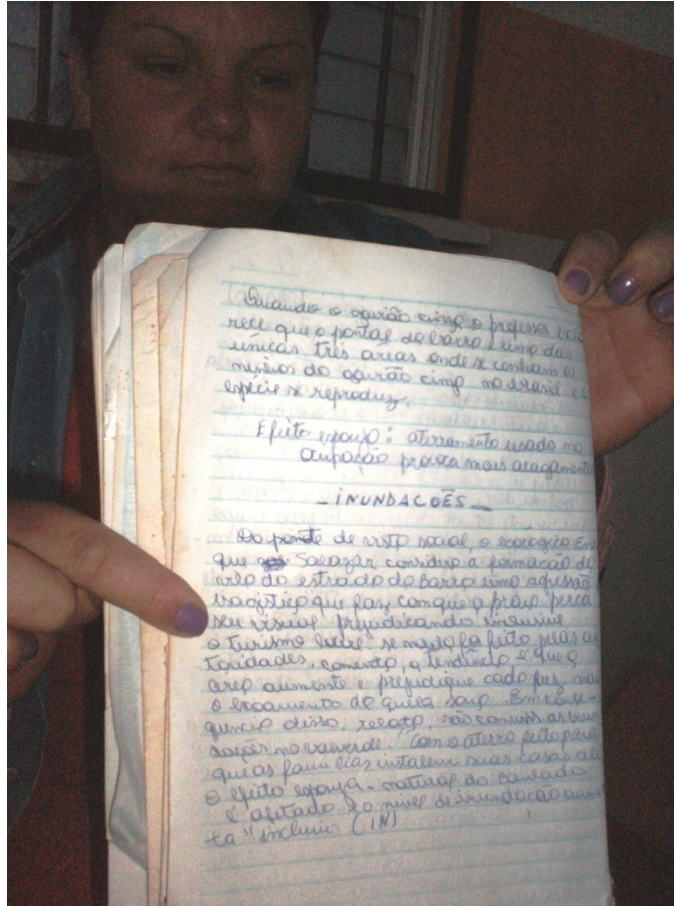 Quando o aguirão cinza o professor
rece que o pontal do barro é uma das
únicas três areas onde se conham o
ninhos do aguirão cinza no brasil e a
espécie se reproduz.
Efeito esponja: aterramento usado na
ocupação provoca mais alagamento
- INUNDACOÊS -
Do ponto de vista social, o ecologico
que Salazar considera a formação do
vila do estrada do Barro uma agressão
que faz com que a praia perca
seu visual prejudicando inclusive
o turismo local. se nada for feito pelas au
toridades, comenta, a tendência é que a
área aumente e prejudique cada vez mais
o escoamento de Em conse-
quencia disso, relata, são comuns as inun
dações no valverde. "Com o aterro feito para
que as familias instalem suas casas ali
o efeito esponja natural do Banhado
é afetado e o nivel de inundação aumen
ta" incluiu (IN)